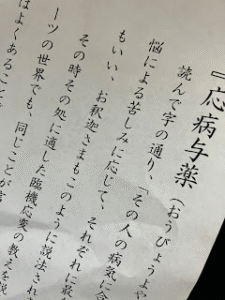 『応病与薬（おうびょうよや
読んで字の通り、「その人の病気に合
悩による苦しみに応じて、それぞれに最
もいい、お釈迦さまもこのように説法され
その時その処に適した臨機応変の教えを説
ーツの世界でも、同じことが言
はよくあること